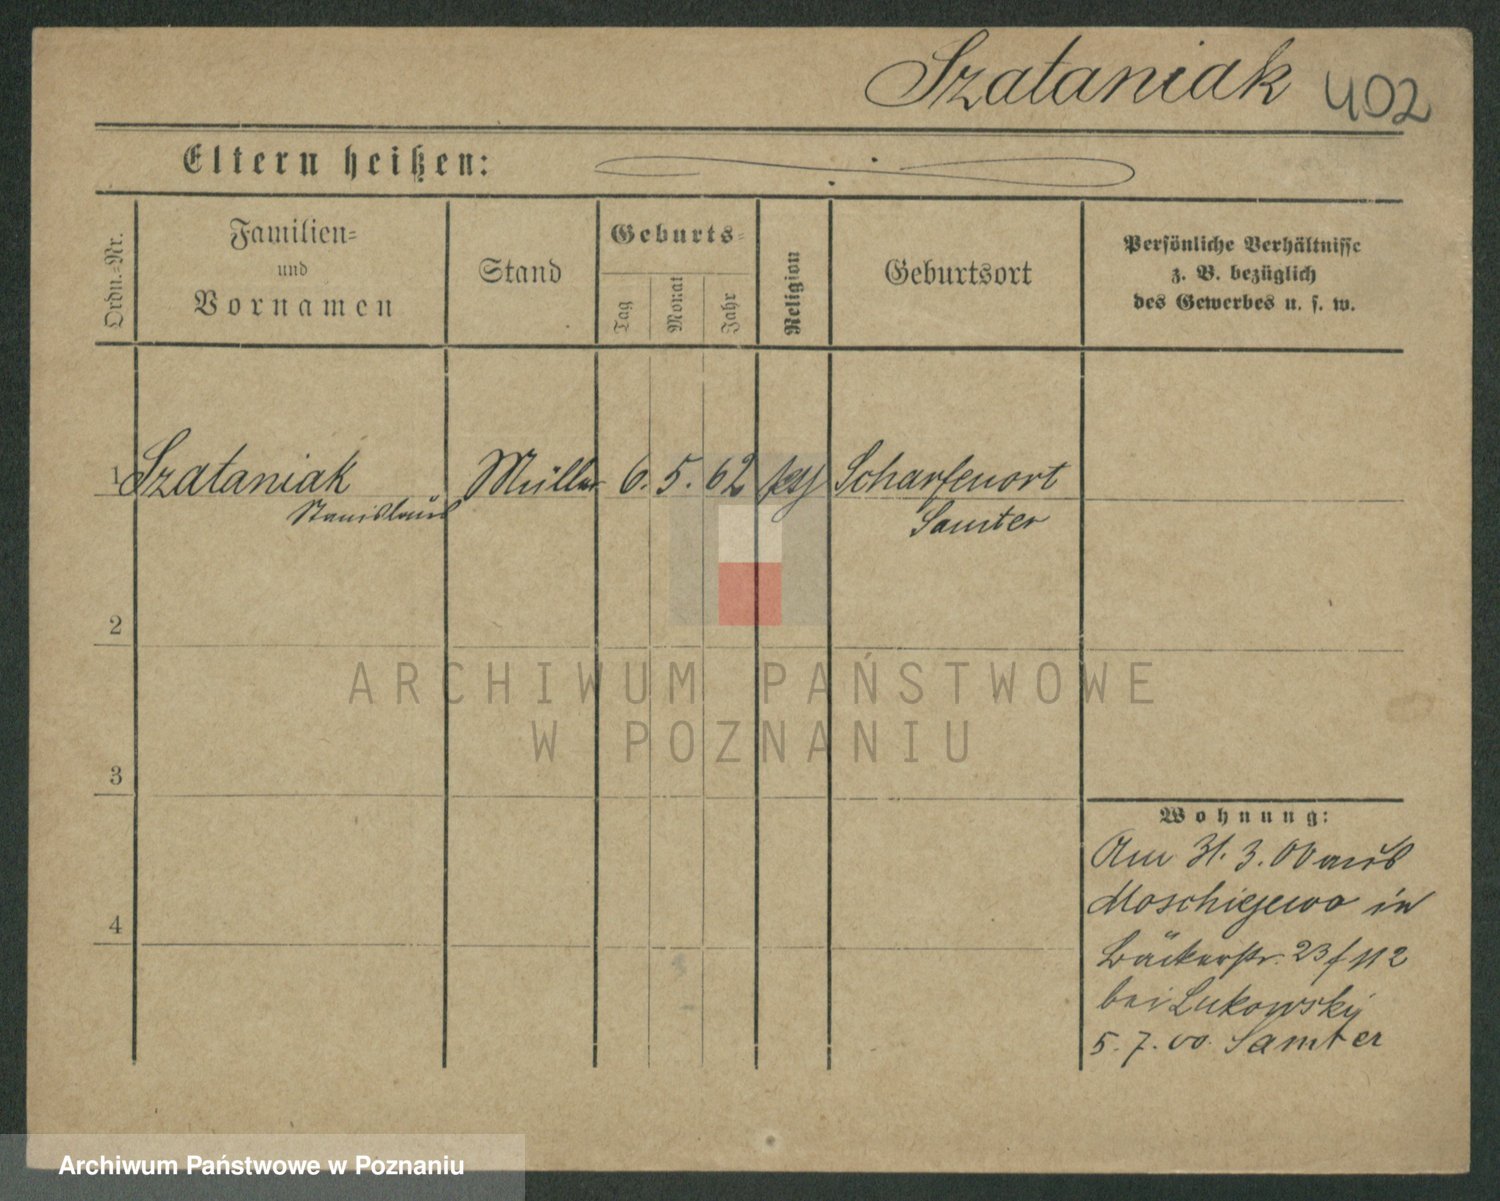 Szataniak 402
Eltern heißen:
Ordn.-Nr.
Familien-
und
Vornamen
Stand
Geburts-
Tag
Monat
Jahr
Religion
Geburtsort
Persönliche Verhältnisse
z. B. bezüglich
des Gewerbes u. s. w.
1 Szataniak Müller 6. 5. 62 Scharfenort
Stanislaus Samter
2
ARCHIWUM PAŃSTWOWE
W POZNANIU
3
Wohnung:
Am 31. 3. 00 aus
Moschiejewo in
4
Bäckerstr. 23 f 112
bei Lukowski
5. 7. 00. Samter
Archiwum Państwowe w Poznaniu